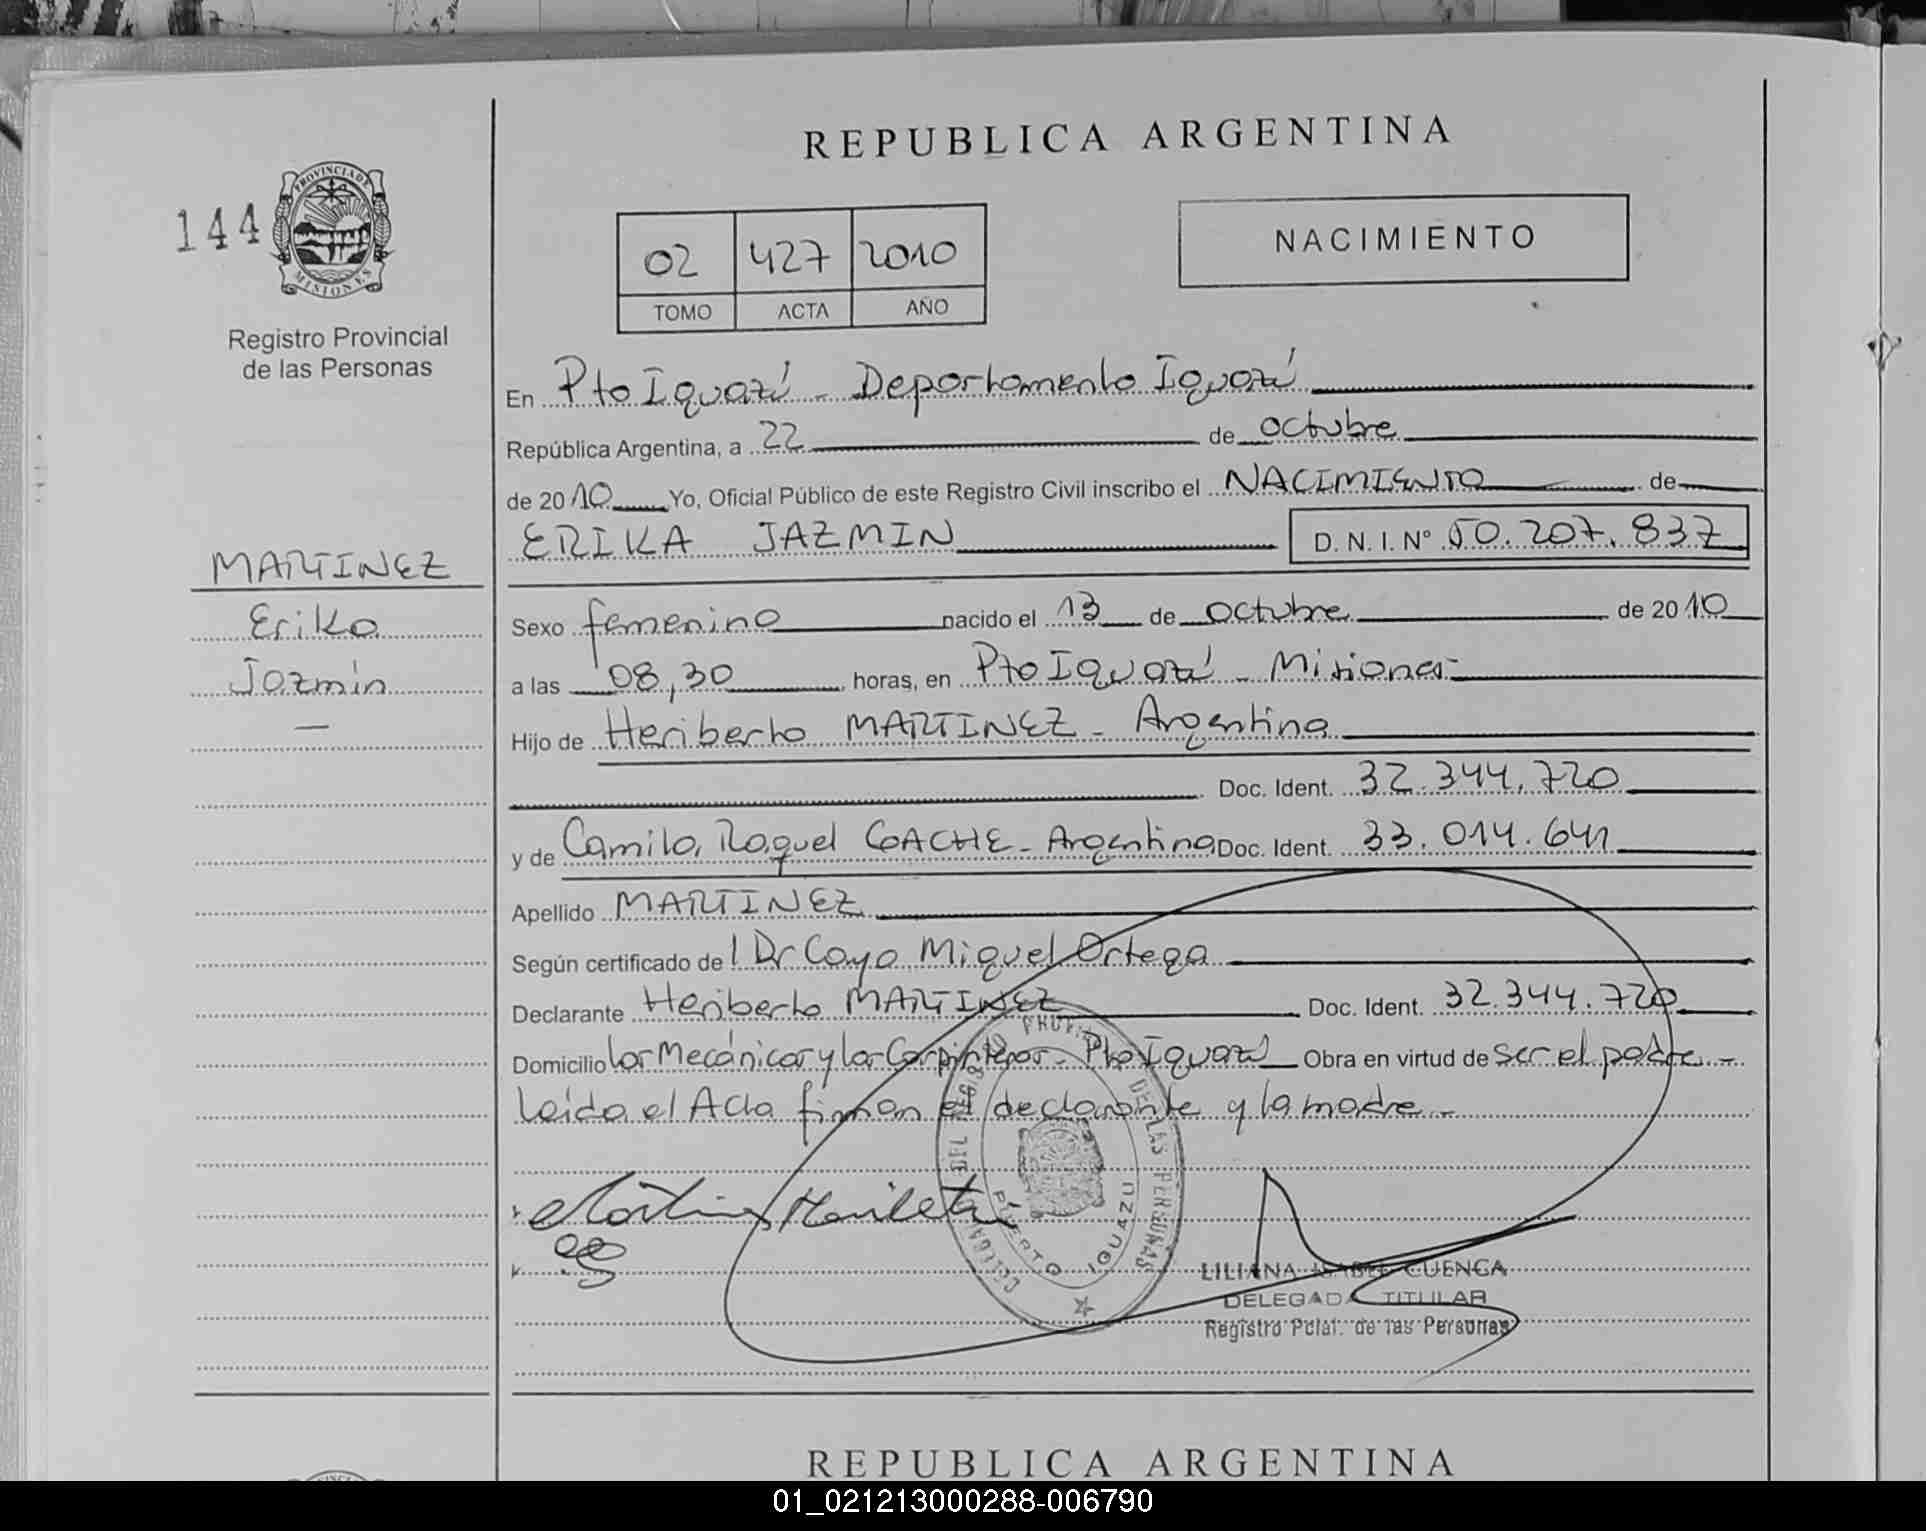 REPUBLICA ARGENTINA
144
PROVINCIA DE
MISIONES
Registro Provincial
de las Personas
02 427 2010
TOMO ACTA AÑO
NACIMIENTO
En Pto Iguazú - Departamento Iguazú
República Argentina, a 22 de octubre
de 2010 Yo, Oficial Público de este Registro Civil inscribo el NACIMIENTO de
ERIKA JAZMIN D. N. I. N° 50.207.837
MARTINEZ
Erika
Jazmín
Sexo femenino nacido el 13 de octubre de 2010
a las 08,30 horas, en Pto Iguazú - Misiones-
Hijo de Heriberto MARTINEZ - Argentina
Doc. Ident. 32.344.720
y de Camila Raquel COACHE - Argentina Doc. Ident. 33.014.641
Apellido MARTINEZ
Según certificado de l Dr Cayo Miguel Ortega
Declarante Heriberto MARTINEZ Doc. Ident. 32.344.720
Domicilio los Mecánicos y los Carpinteros - Pto Iguazú Obra en virtud de ser el padre -
Leída el Acta firman el declarante y la madre -
DELEGA DEL REGISTRO PROV DE LAS PERSONAS
PUERTO IGUAZU
LILIANA ISABEL CUENCA
DELEGADA TITULAR
Registro Pcial. de las Personas
REPUBLICA ARGENTINA
01_021213000288-006790